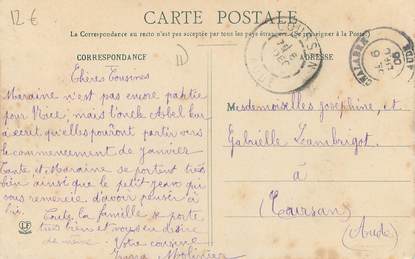 12€
CARTE POSTALE
La Correspondance au recto n'est pas acceptée par tous les pays étrangers.
CORRESPONDANCE
ADRESSE
Chères Cousines
Maraine n'est pas encore partie
pour Nice, mais l'oncle Abel lui
a écrit qu'elles pourront partir vers
le commencement de janvier
Tante et Maraine se portent très
bien ainsi que le petit Jean qui
vous remercie d'avoir penser à
lui.
Toute la famille se porte
très bien et vous en désire
de même.
Votre cousine
Molinier
Mesdemoiselles Joséphine, et
Gabrielle Lambrigot
à
Taursan
(Aude)
CHALABRE
LF